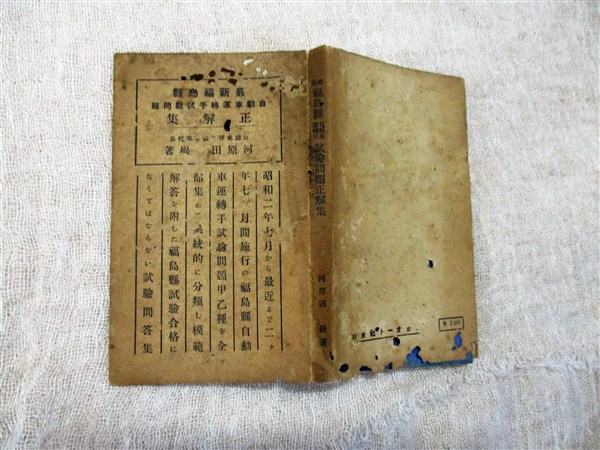 最新福島縣
自動車運轉手試驗問題
正解集
河原田 著
昭和二年七月から最近まで二ヶ
年七ヶ月間施行の福島縣自動
車運轉手試驗問題甲乙種を全
部集めこ系統的に分類し模範
解答を附した福島縣試驗合格に
なくてはならない試驗問答集
福島縣 試驗問題正解集
河原田 著
オート社發行
¥ 1.00